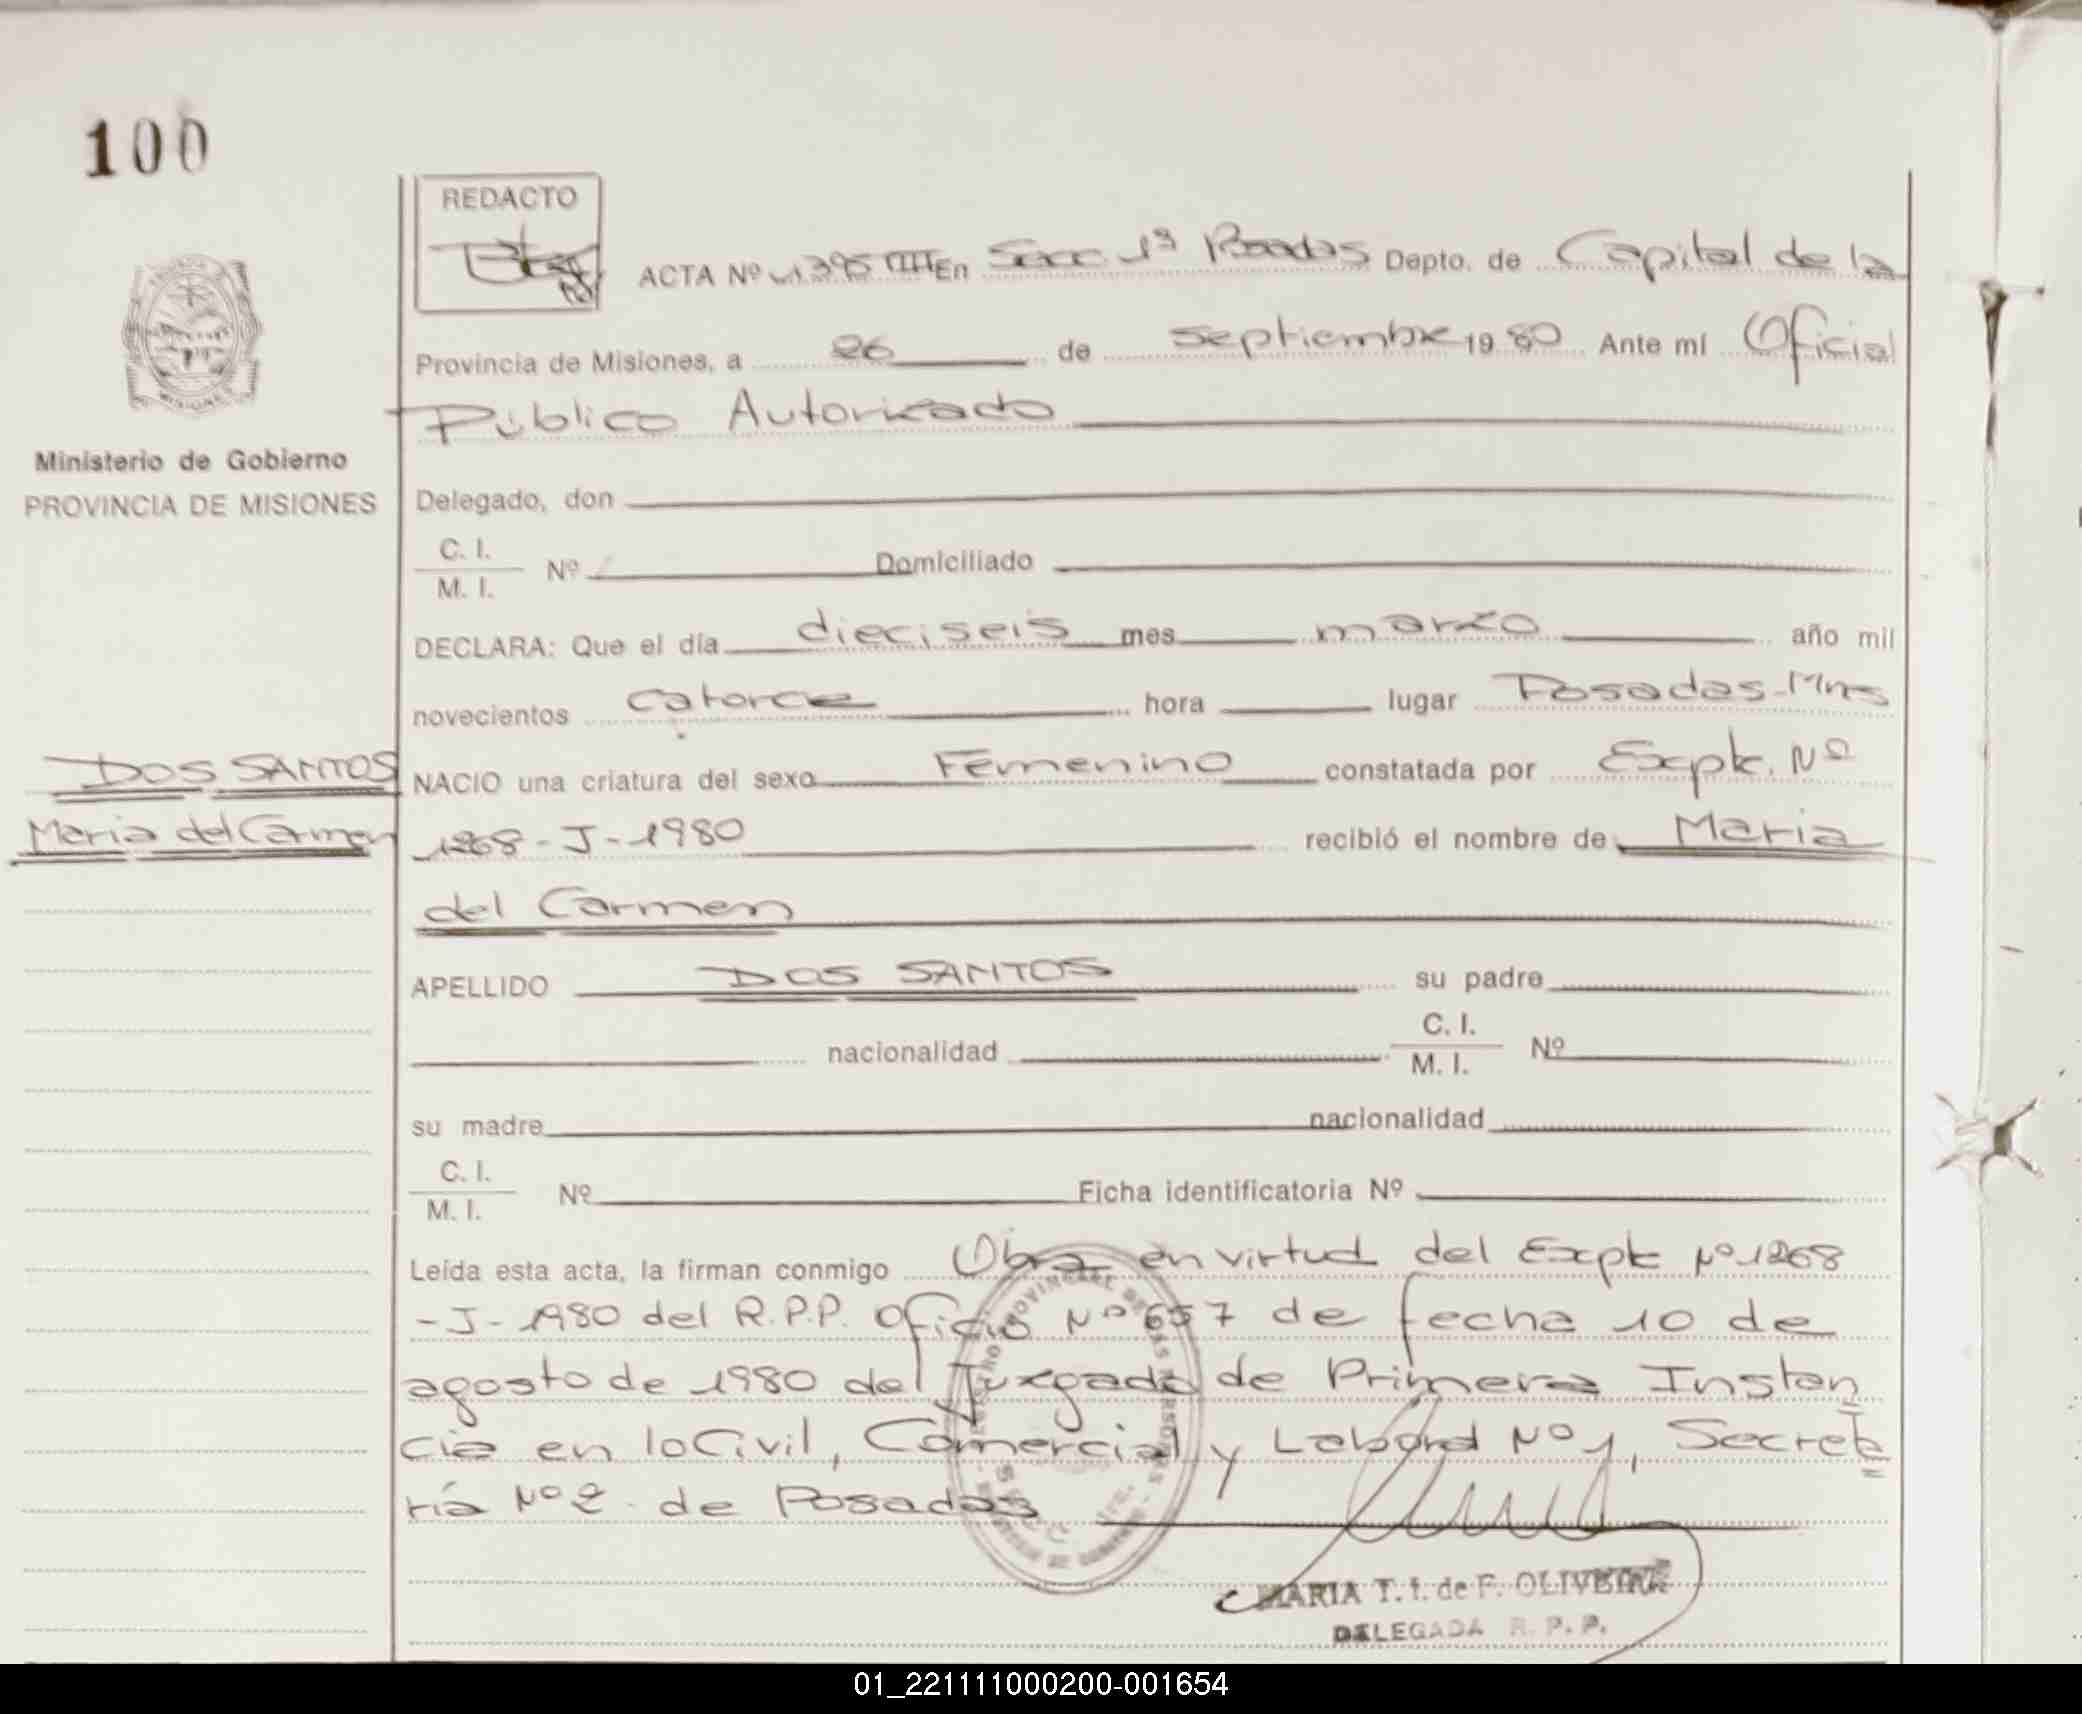 100
REDACTO
ACTA Nº 1395 TIII En Secc 1ª Posadas Depto. de Capital de la
Provincia de Misiones, a 26 de septiembre 19 80 Ante mí Oficial
Público Autorizado
Ministerio de Gobierno
PROVINCIA DE MISIONES
Delegado, don
C. I.
M. I. Nº Domiciliado
DECLARA: Que el día dieciseis mes marzo año mil
novecientos catorce hora lugar Posadas-Mnes
DOS SANTOS
NACIO una criatura del sexo Femenino constatada por Expte. Nº
Maria del Carmen
1268-J-1980 recibió el nombre de Maria
del Carmen
APELLIDO DOS SANTOS su padre
nacionalidad C. I.
M. I. Nº
su madre nacionalidad
C. I.
M. I. Nº Ficha identificatoria Nº
Leída esta acta, la firman conmigo Obra en virtud del Expte Nº 1268
-J-1980 del R.P.P. Oficio Nº 657 de fecha 10 de
agosto de 1980 del Juzgado de Primera Instan
cia en lo Civil, Comercial y Laboral Nº 1, Secreta
ría Nº 2 de Posadas
MARIA T. I. de F. OLIVEIRA
DELEGADA R. P. P.
01_221111000200-001654